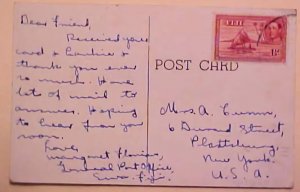 Dear Friend,
Received your
card & Emblie &
thank you ever
so much. Have
lots of mail to
answer. Hoping
to hear from you
soon.
Love,
Margaret
General Post Office,
Suva. Fiji.
FIJI
POST CARD
Mrs A.
6 Durand Street,
Plattsburg,
New York.
U. S. A.